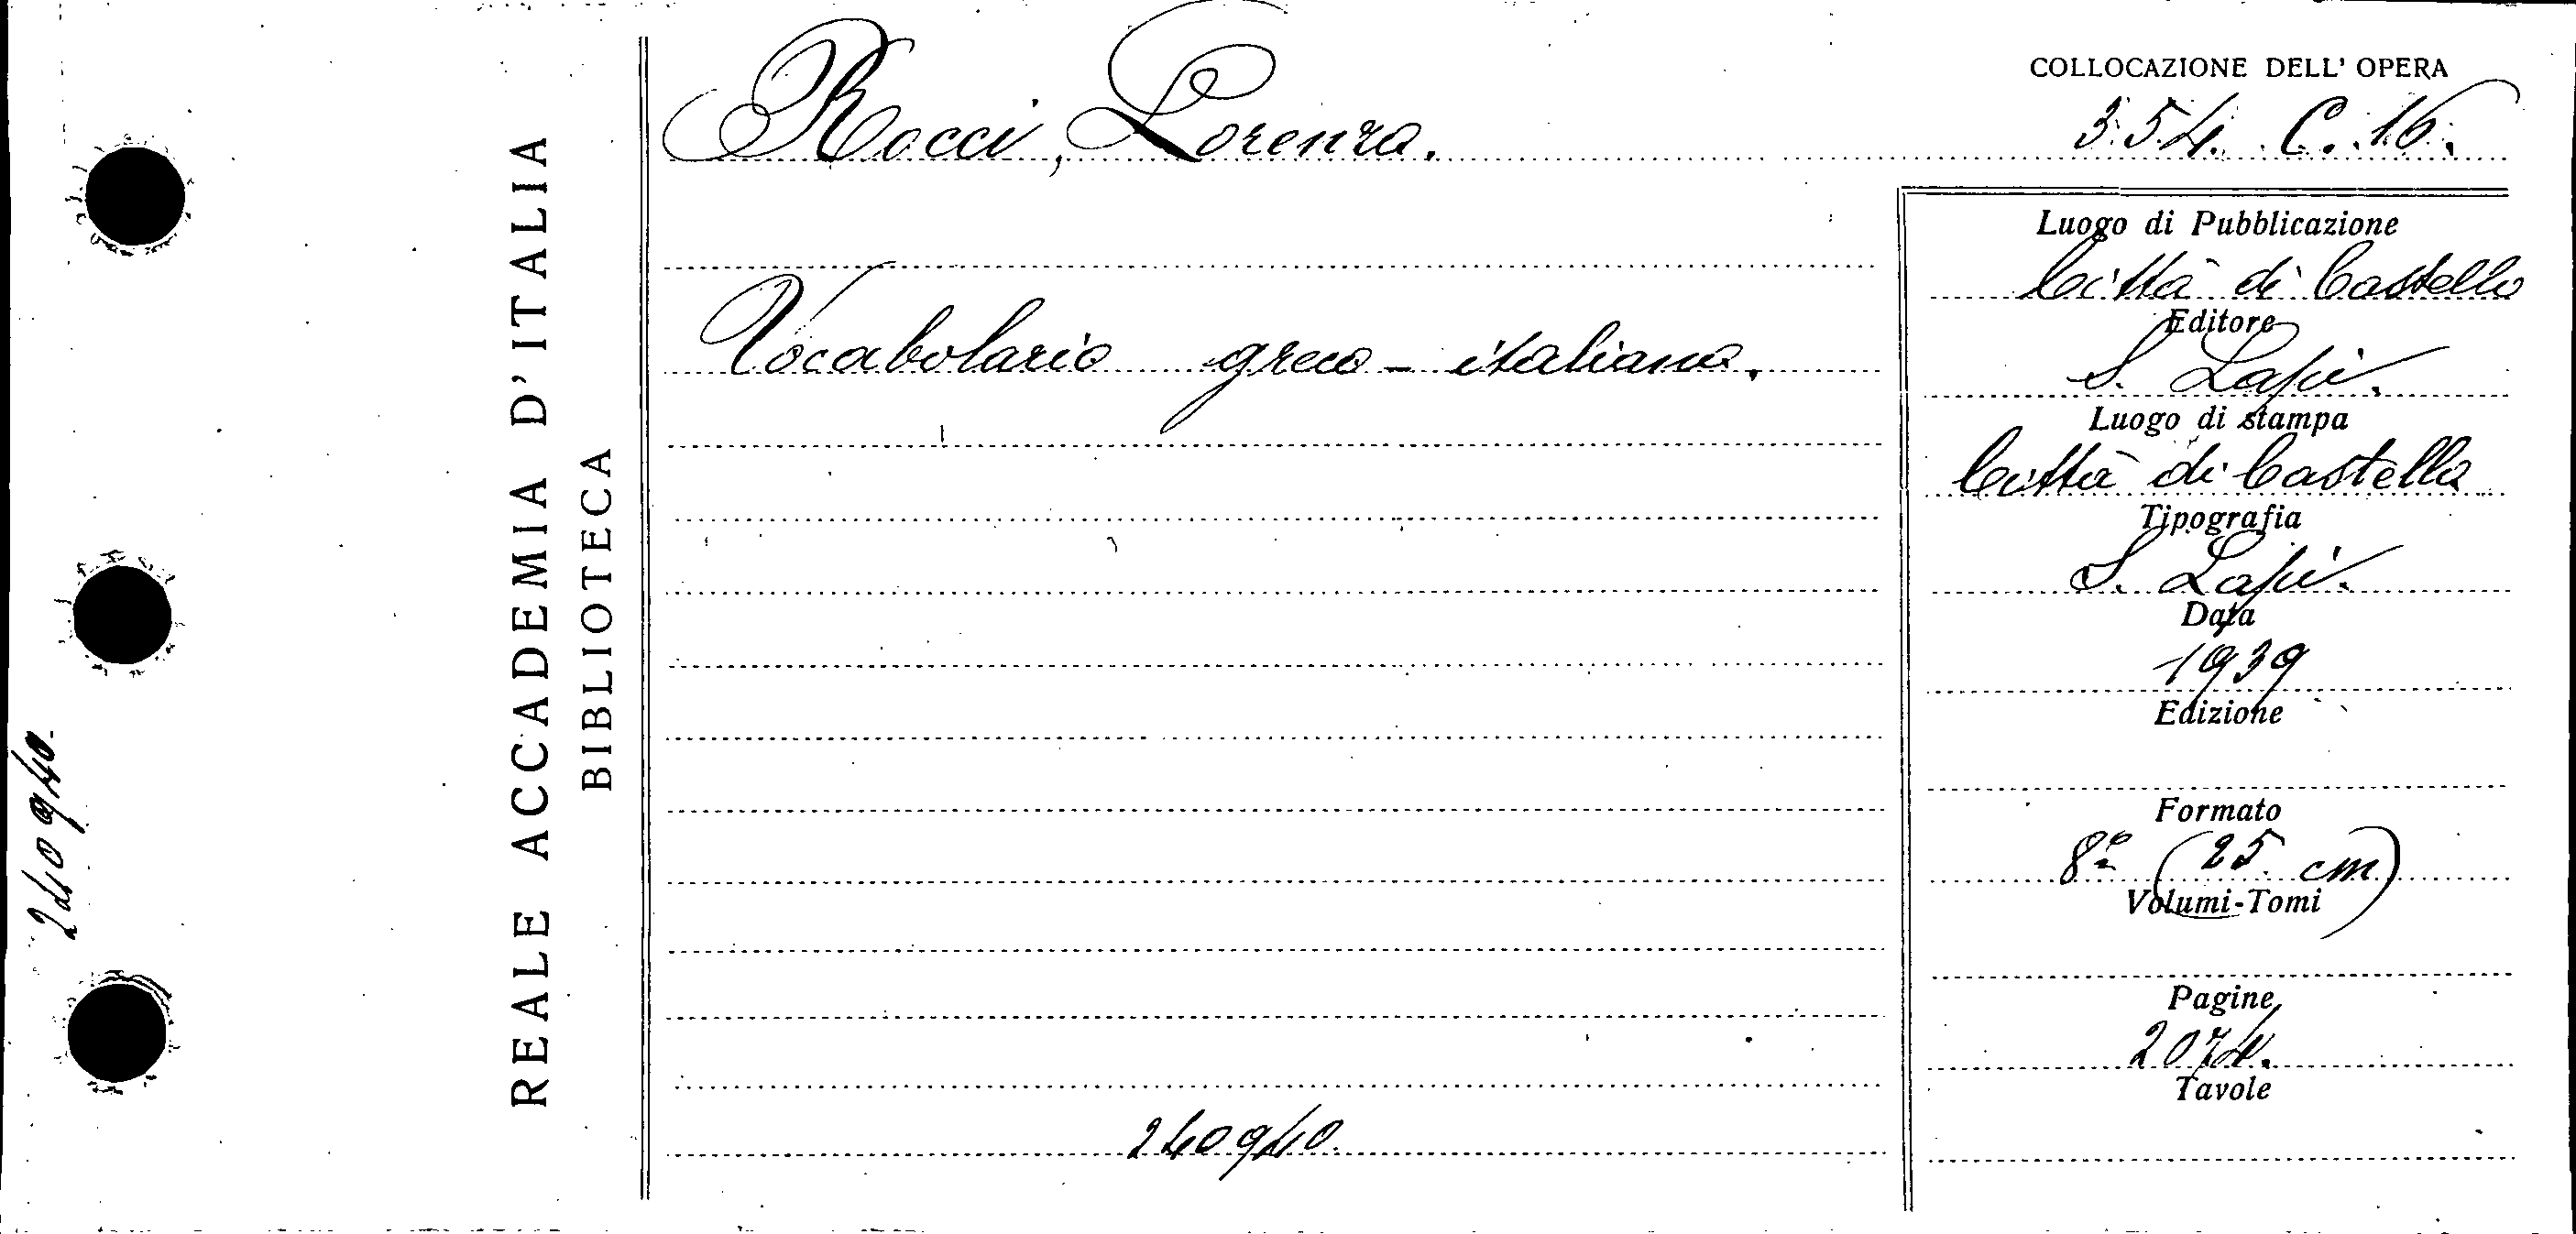 Rocci, Lorenzo.
COLLOCAZIONE DELL' OPERA
354. C. 16.
Vocabolario greco - italiano.
240940.
Luogo di Pubblicazione
Città di Castello
Editore
S. Lapi.
Luogo di stampa
Città di Castello
Tipografia
S. Lapi.
Data
1939
Edizione
Formato
8º (25 cm)
Volumi-Tomi
Pagine
2074.
Tavole
REALE ACCADEMIA D'ITALIA
BIBLIOTECA
240940.